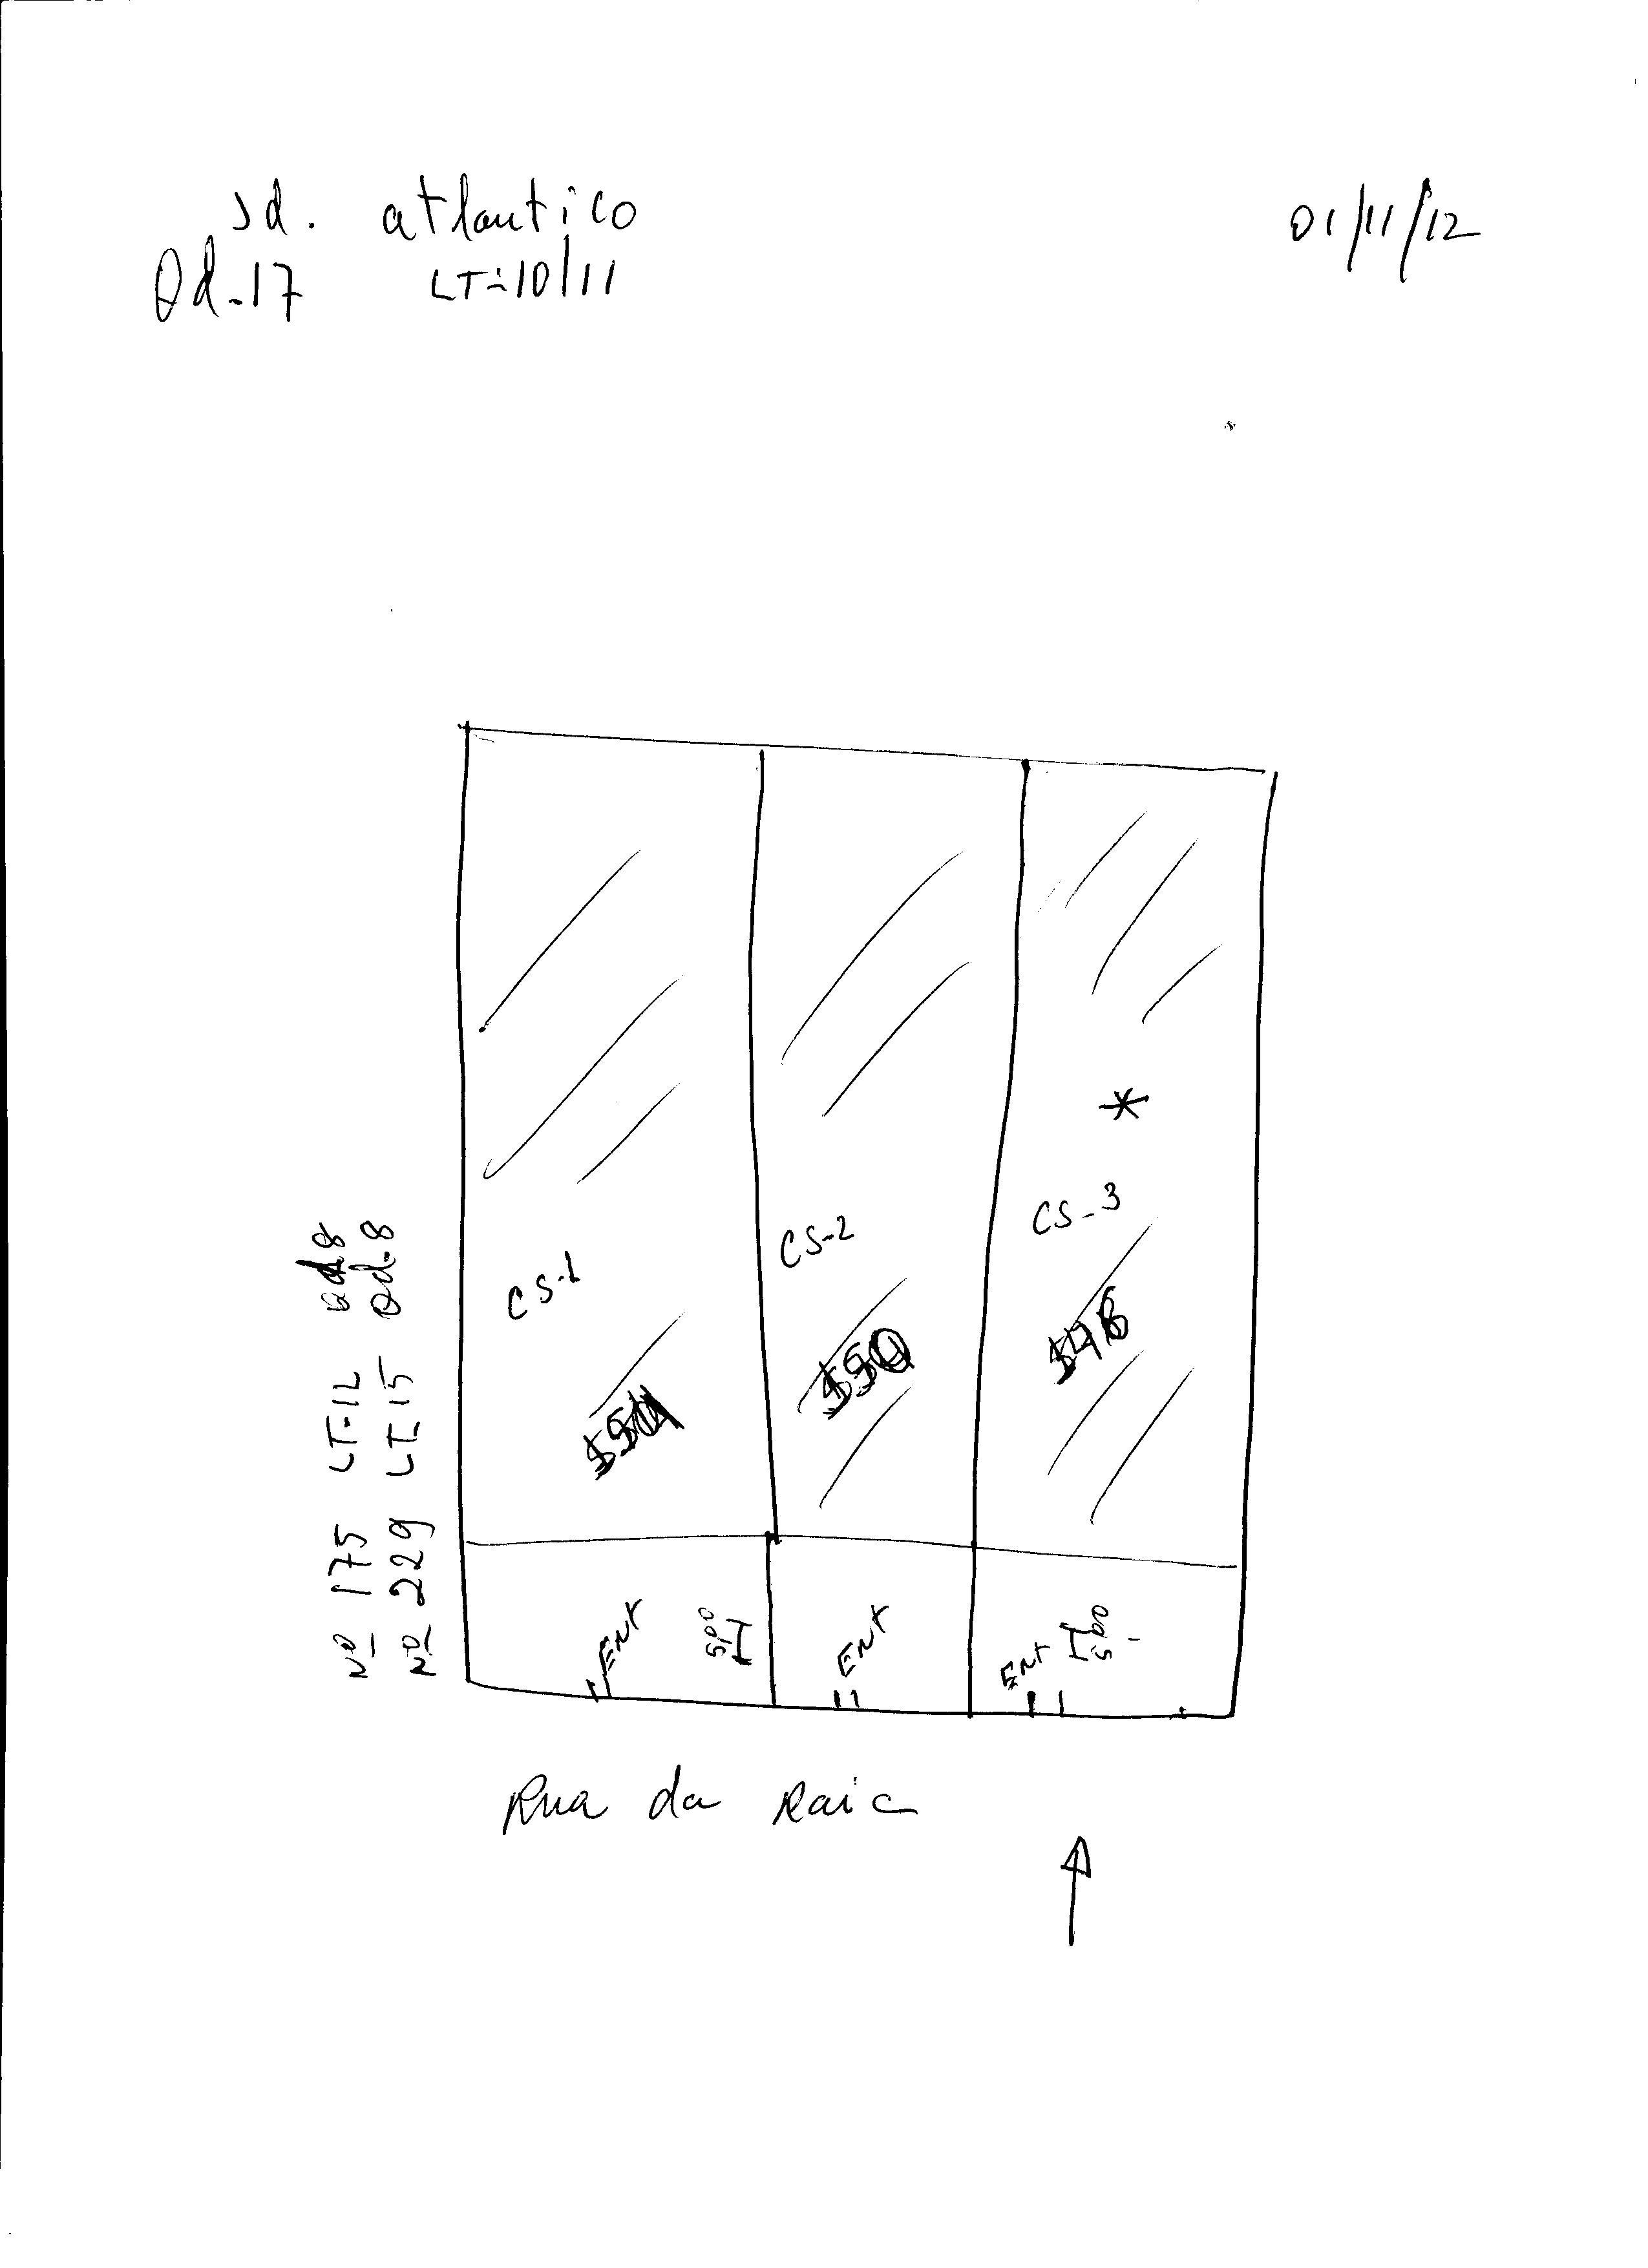 Jd. atlantico
01/11/12
Qd-17 LT=10/11
CS-1
CS-2
CS-3
Nº 175 LT-12 Qd8
Nº 229 LT-15 Qd-8
Ent
5,00
Ent
Ent
Rua da Raia